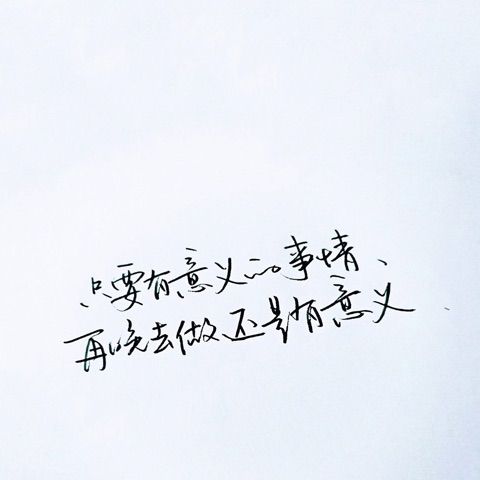 只要有意义的事情、
再晚去做还是有意义